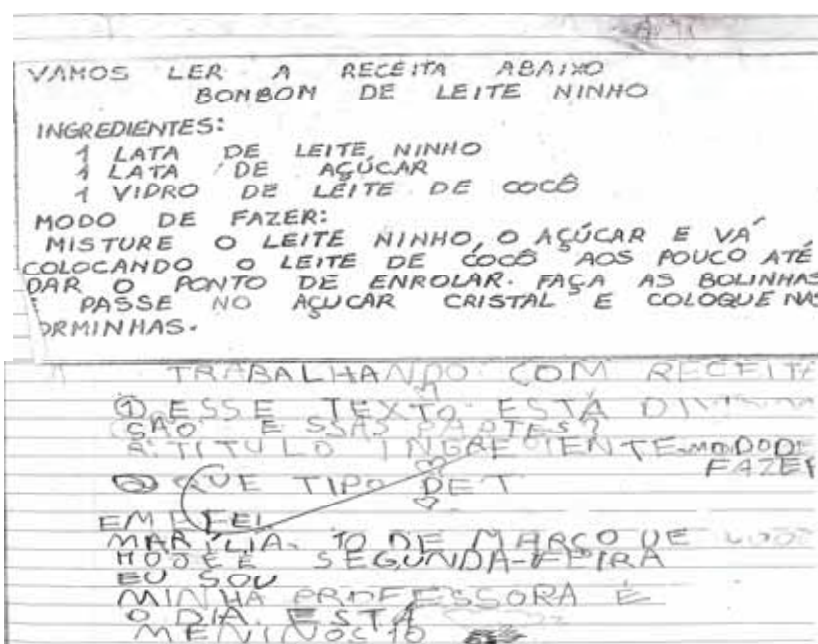 VAMOS LER A RECEITA ABAIXO
BOMBOM DE LEITE NINHO
INGREDIENTES:
1 LATA DE LEITE NINHO
1 LATA DE AÇÚCAR
1 VIDRO DE LEITE DE COCÔ
MODO DE FAZER:
MISTURE O LEITE NINHO, O AÇÚCAR E VÁ
COLOCANDO O LEITE DE COCÔ AOS POUCO ATÉ
DAR O PONTO DE ENROLAR. FAÇA AS BOLINHAS
PASSE NO AÇUCAR CRISTAL E COLOQUE NAS
ORMINHAS.
TRABALHANDO COM RECEITA
1) ESSE TEXTO ESTÁ
SÃO ESSAS PARTES?
R: TITULO INGREDIENTE MODO DE
FAZER
2) QUE TIPO DE T
EMEFEI
MARÍLIA, 10 DE MARÇO DE
HOJE É SEGUNDA-FEIRA
EU SOU
MINHA PROFESSORA É
O DIA ESTÁ
MENINOS 10